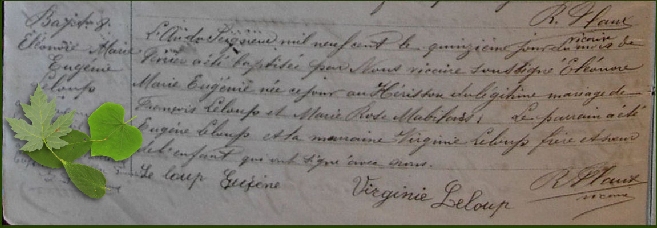 R. Flaux
vicaire
Bapt. 8.
Eléonore Marie
Eugénie
Leloup
L'An du Seigneur mil neuf cent le quinzième jour du mois de
Février a été baptisée par Nous vicaire soussigné Eléonore
Marie Eugénie née ce jour au Hérisson du légitime mariage de
François Leloup et Marie Rose Le parrain a été
Eugène Leloup et la marraine Virginie Leloup frère et sœur
de l'enfant qui ont signé avec nous.
Le loup Eugène Virginie Leloup R. Flaux
vicaire